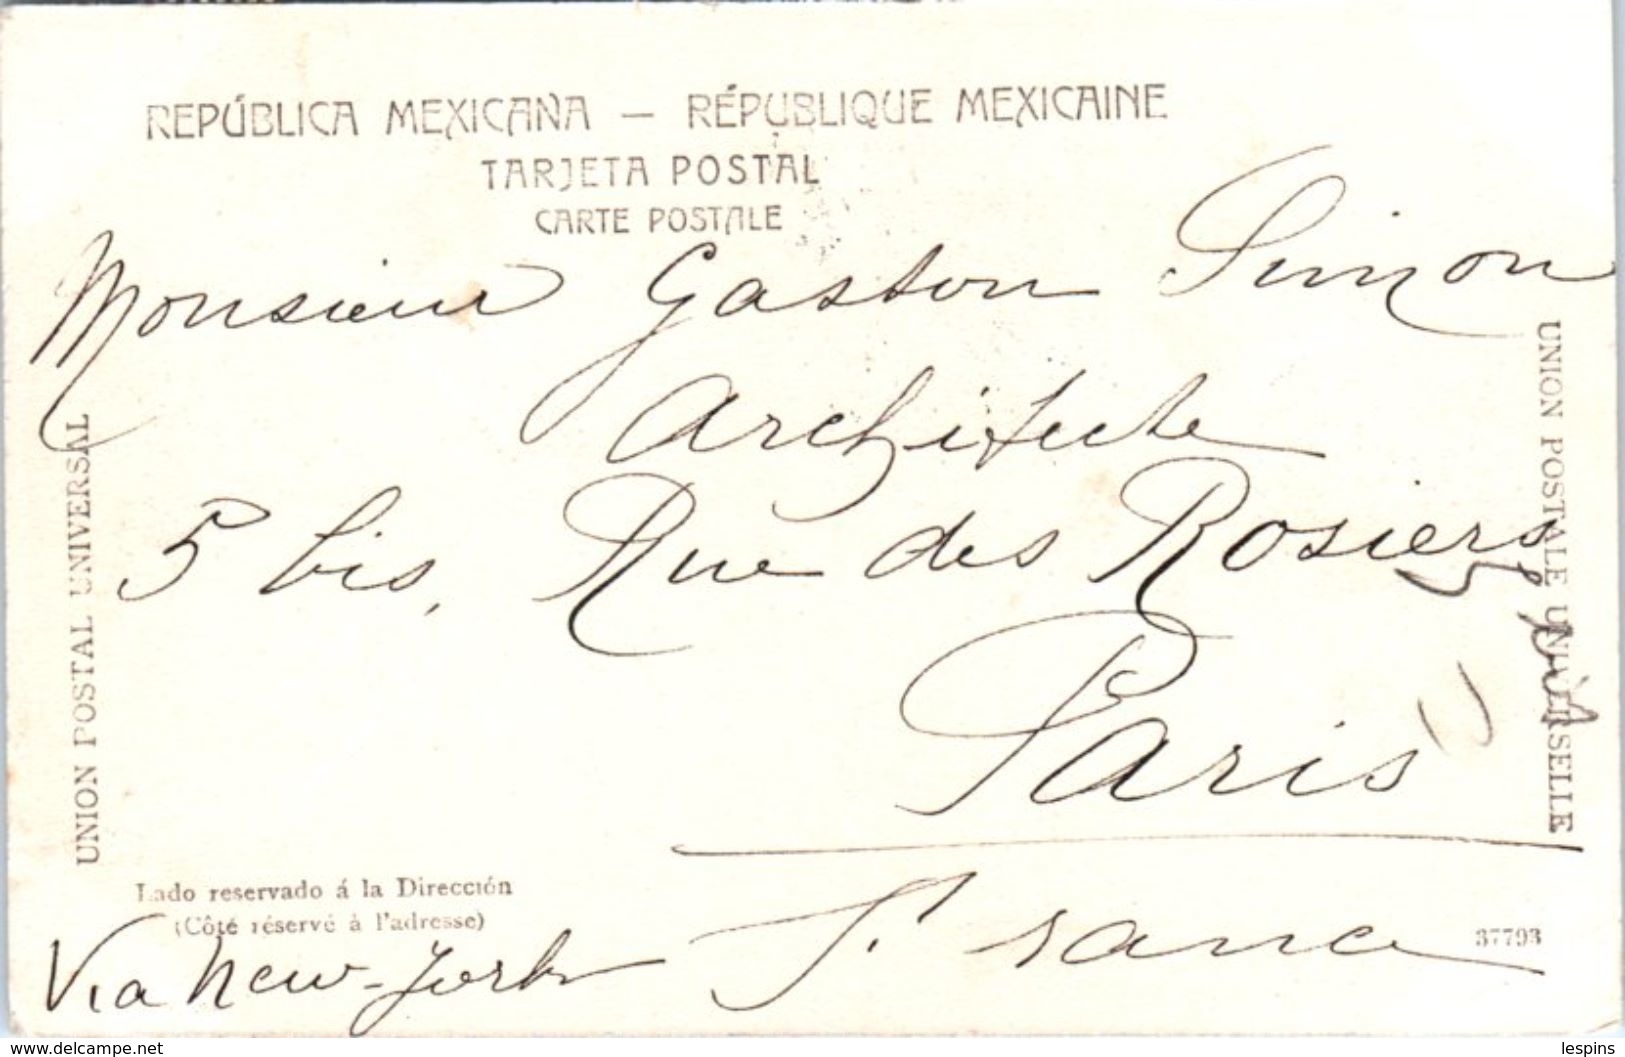 REPÚBLICA MEXICANA — RÉPUBLIQUE MEXICAINE
TARJETA POSTAL
CARTE POSTALE
Monsieur Gaston Simon
Architecte
5 bis, Rue des Rosiers
Paris
France
Via New-York
UNION POSTAL UNIVERSAL
UNION POSTALE UNIVERSELLE
Lado reservado á la Dirección
(Côté réservé à l'adresse)
37793
www.delcampe.net
lespins